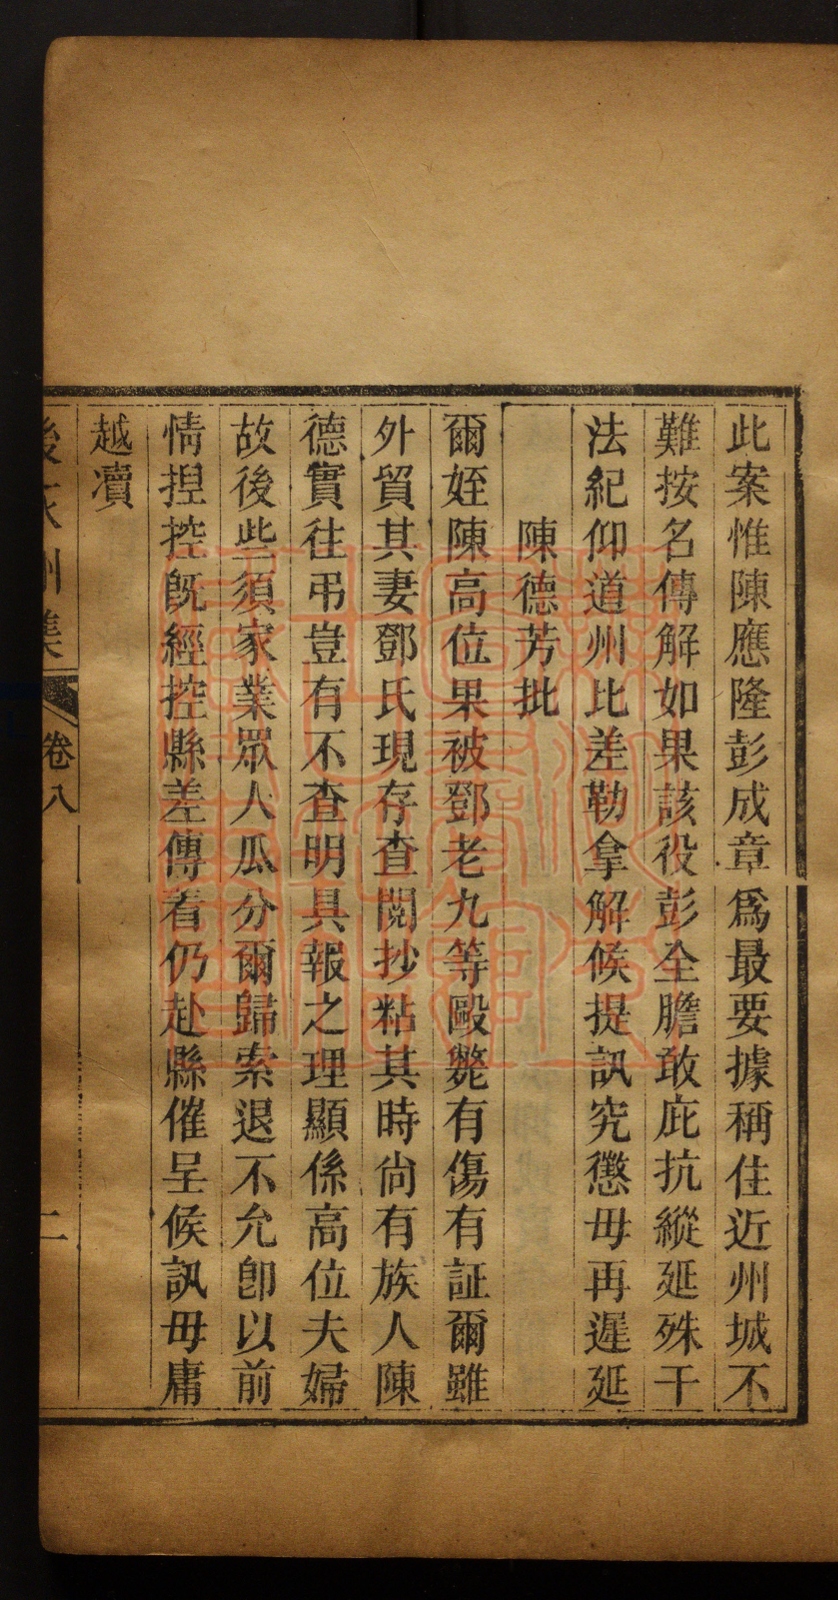 此案惟陳應隆彭成章爲最要據稱住近州城不
難按名傳解如果該役彭全膽敢庇抗縱延殊干
法紀仰道州比差勒拿解候提訊究懲毋再遲延
陳德芳批
爾姪陳高位果被鄧老九等毆斃有傷有証爾雖
外貿其妻鄧氏現存查閱抄粘其時尚有族人陳
德實往弔豈有不查明具報之理顯係高位夫婦
故後些須家業眾人瓜分爾歸索退不允卽以前
情捏控旣經控縣差傳着仍赴縣催呈候訊毋庸
越瀆
卷八
二